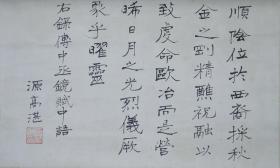 順陰位於西裔採秋
金之剛精醮祝融以
致虔命歐冶而是營
晞日月之光烈儀厥
象乎曜靈
右録傅中丞鏡賦中語
源高湛